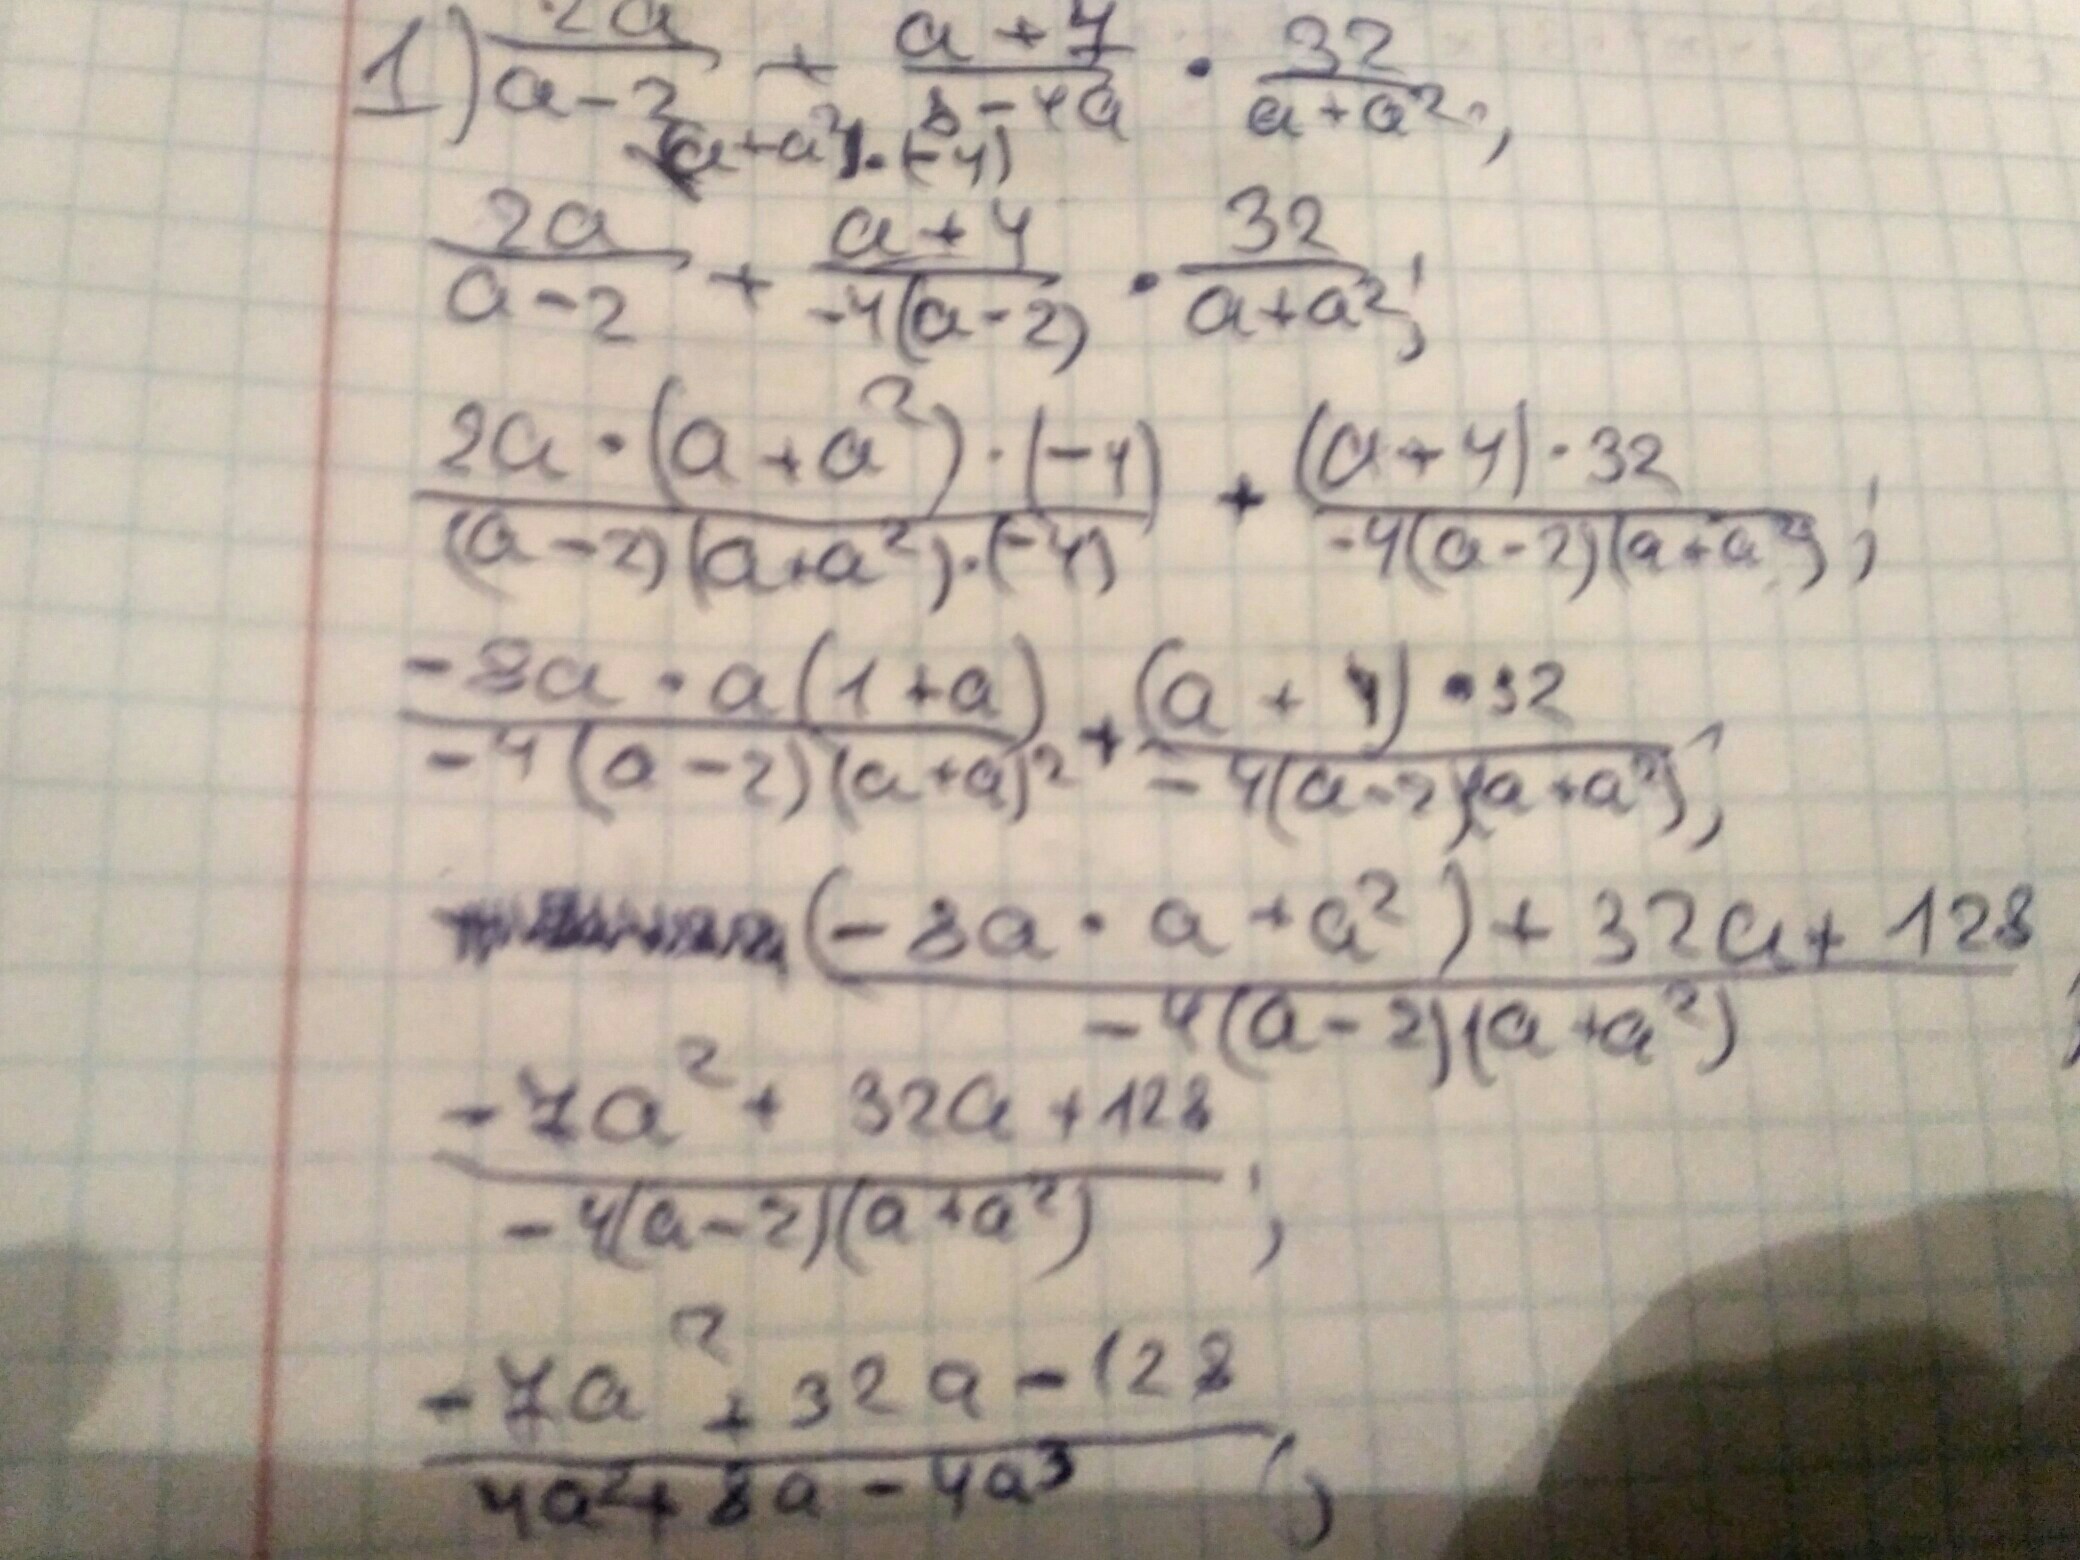 1) 2a/(a-2) + (a+4)/(8-4a) · 32/(a+a²);
(a+a²)·(-4)
2a/(a-2) + (a+4)/(-4(a-2)) · 32/(a+a²);
(2a·(a+a²)·(-4))/((a-2)(a+a²)·(-4)) + ((a+4)·32)/(-4(a-2)(a+a²));
(-8a·a(1+a))/(-4(a-2)(a+a)²) + ((a+4)·32)/(-4(a-2)(a+a²));
((-8a·a+a²)+32a+128)/(-4(a-2)(a+a²));
(-7a²+32a+128)/(-4(a-2)(a+a²));
(-7a²+32a-128)/(4a²+8a-4a³);